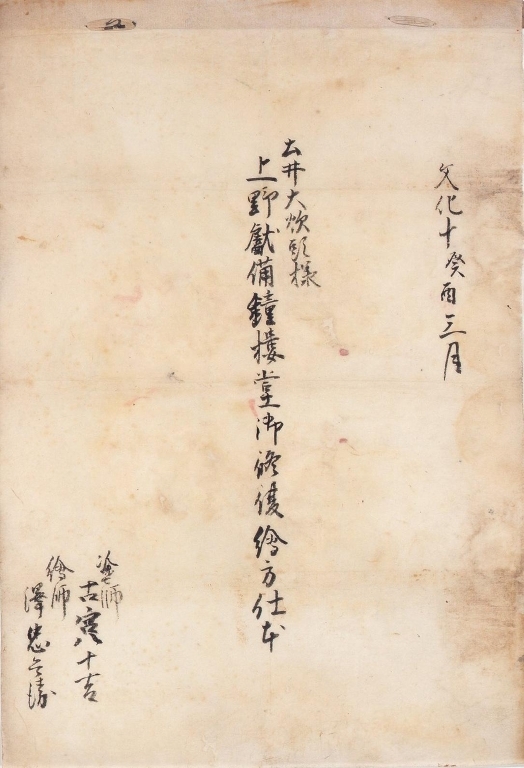 文化十癸酉三月
土井大炊頭様
上野獻備鐘楼堂御修復繪方仕本
塗師
古宮八十吉
繪師
澤忠兵衛